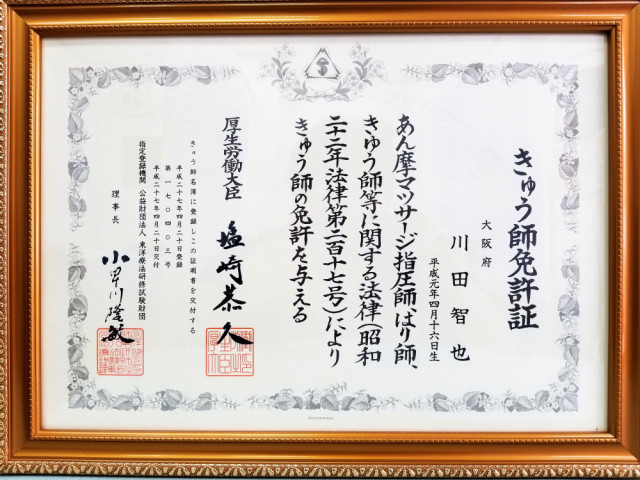 きゅう師免許証
大阪府
川田智也
平成元年四月十六日生
あん摩マッサージ指圧師、はり師、
きゅう師等に関する法律（昭和
二十二年法律第二百十七号）により
きゅう師の免許を与える
厚生労働大臣 塩崎恭久
きゅう師名簿に登録しこの証明書を交付する
平成二十七年四月二十日登録
第一七〇四〇三号
平成二十七年四月二十日交付
指定登録機関 公益財団法人 東洋療法研修試験財団
理事長 小早川隆敏